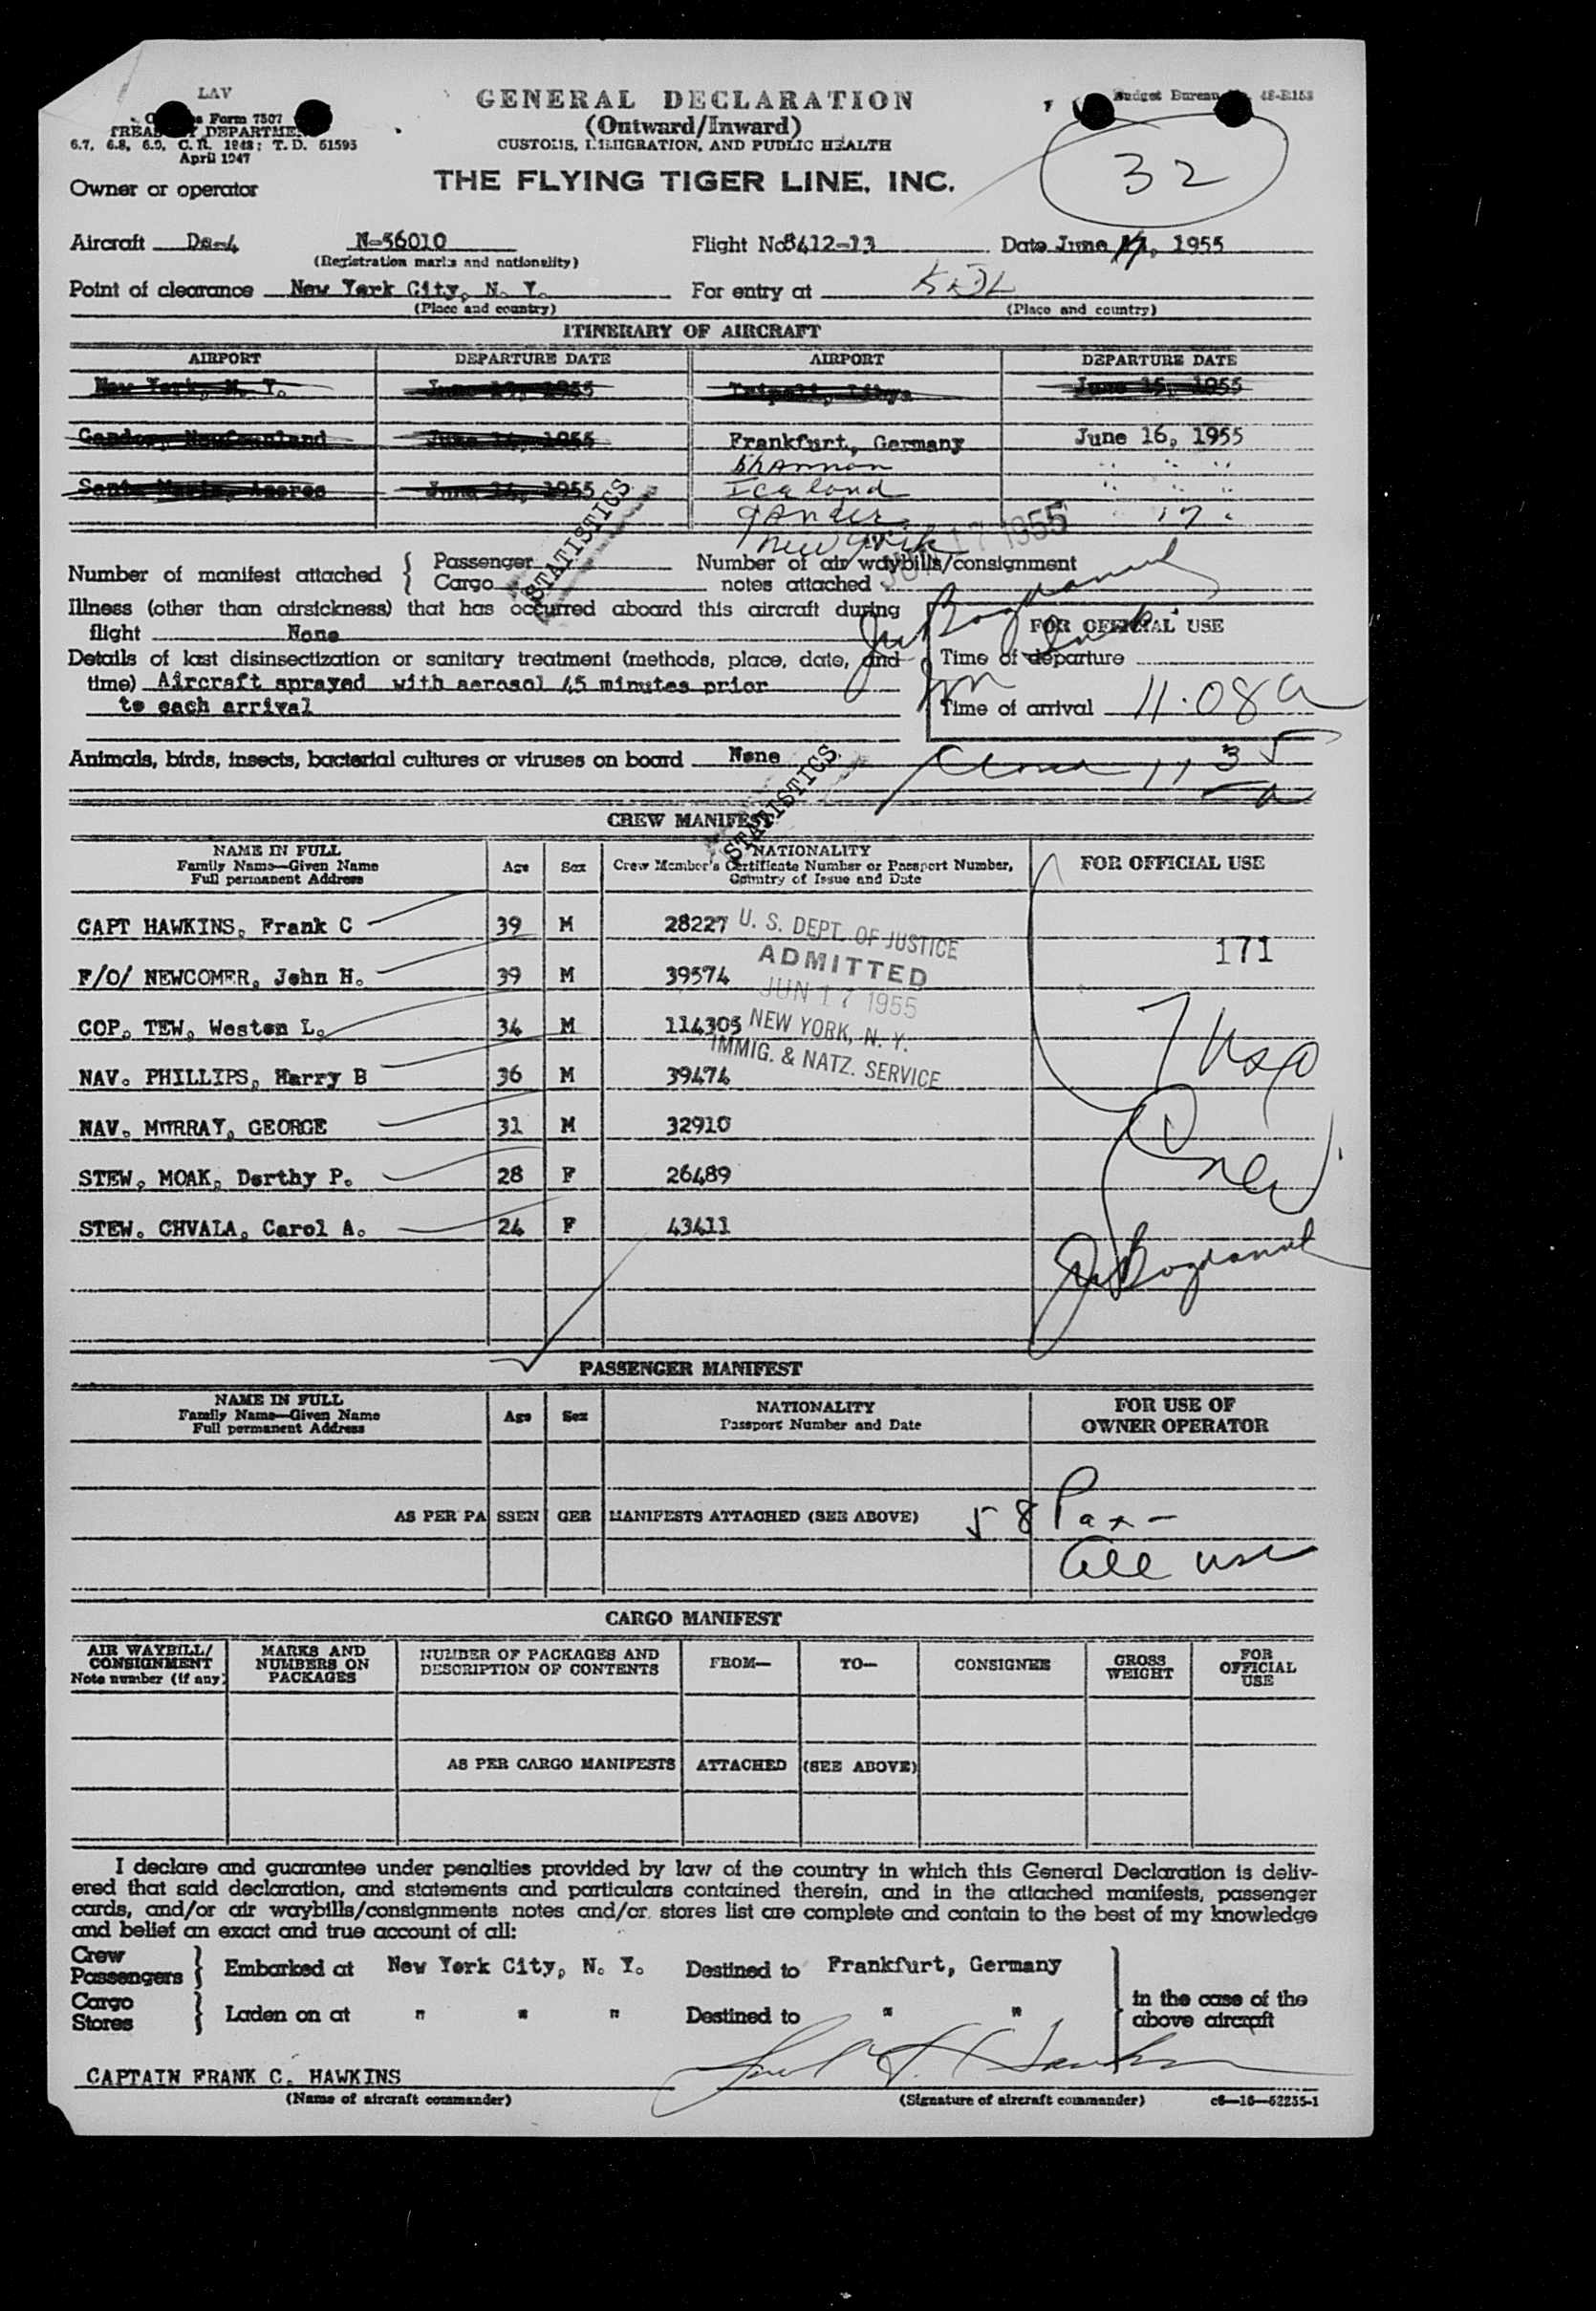 LAV
GENERAL DECLARATION
(Outward/Inward)
CUSTOMS, IMMIGRATION, AND PUBLIC HEALTH
Form 7507
TREASURY DEPARTMENT
6.7, 6.8, 6.9, C. R. 1943; T. D. 51593
April 1947
Budget Bureau 48-R153
32
Owner or operator
THE FLYING TIGER LINE, INC.
Aircraft Dc-4 N-56010 Flight No 8412-13 Date June 17, 1955
(Registration marks and nationality)
Point of clearance New York City, N. Y. For entry at
(Place and country) (Place and country)
ITINERARY OF AIRCRAFT
AIRPORT DEPARTURE DATE AIRPORT DEPARTURE DATE
New York, N. Y. 1955 Tripoli, Libya June 15, 1955
Gander, Newfounland June 14, 1955 Frankfurt, Germany June 16, 1955
Shannon " " "
Santa Maria, Azores June 14, 1955 Iceland " " "
Gander 17 "
New York
STATISTICS
JUN 17 1955
Number of manifest attached { Passenger
Cargo
Number of air waybills/consignment
notes attached
Illness (other than airsickness) that has occurred aboard this aircraft during
flight None
FOR OFFICIAL USE
Details of last disinsectization or sanitary treatment (methods, place, date, and
time) Aircraft sprayed with aerosol 45 minutes prior
to each arrival
Time of departure
Time of arrival 11:08a
Animals, birds, insects, bacterial cultures or viruses on board None
11 35 a
STATISTICS
CREW MANIFEST
NAME IN FULL
Family Name—Given Name
Full permanent Address
Age Sex
NATIONALITY
Crew Member's Certificate Number or Passport Number,
Country of Issue and Date
FOR OFFICIAL USE
CAPT HAWKINS, Frank C 39 M 28227
F/O/ NEWCOMER, John H. 39 M 39574 171
COP. TEW, Weston L. 34 M 114305
NAV. PHILLIPS, Harry B 36 M 39474
NAV. MURRAY, GEORGE 31 M 32910
STEW. MOAK, Dorthy P. 28 F 26489
STEW. CHVALA, Carol A. 24 F 43411
U. S. DEPT. OF JUSTICE
ADMITTED
JUN 17 1955
NEW YORK, N. Y.
IMMIG. & NATZ. SERVICE
7 Usa
Crew
PASSENGER MANIFEST
NAME IN FULL
Family Name—Given Name
Full permanent Address
Age Sex
NATIONALITY
Passport Number and Date
FOR USE OF
OWNER OPERATOR
AS PER PASSENGER MANIFESTS ATTACHED (SEE ABOVE) 58 Pax -
All usa
CARGO MANIFEST
AIR WAYBILL/
CONSIGNMENT
Note number (if any)
MARKS AND
NUMBERS ON
PACKAGES
NUMBER OF PACKAGES AND
DESCRIPTION OF CONTENTS
FROM— TO— CONSIGNEE
GROSS
WEIGHT
FOR
OFFICIAL
USE
AS PER CARGO MANIFESTS ATTACHED (SEE ABOVE)
I declare and guarantee under penalties provided by law of the country in which this General Declaration is deliv-
ered that said declaration, and statements and particulars contained therein, and in the attached manifests, passenger
cards, and/or air waybills/consignments notes and/or stores list are complete and contain to the best of my knowledge
and belief an exact and true account of all:
Crew
Passengers } Embarked at New York City, N. Y. Destined to Frankfurt, Germany
Cargo
Stores } Laden on at " " " Destined to " "
in the case of the
above aircraft
CAPTAIN FRANK C. HAWKINS
(Name of aircraft commander) (Signature of aircraft commander) c6—16—52255-1